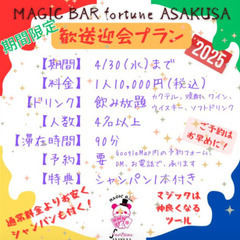 MAGIC BAR fortune ASAKUSA
期間限定
歓送迎会プラン
2025
【期間】 4/30(水)まで
【料金】 1人10,000円(税込)
【ドリンク】 飲み放題 カクテル、焼酎、ワイン、
ウイスキー、ソフトドリンク
【人数】 4名以上
ご予約は
お早めに!
【滞在時間】 90分
【予約】 要 GoogleMap内の予約フォームで
DM、お電話で、承ります
【特典】 シャンパン1本付き
通常料金よりお安く、
シャンパンも付く!
MAGIC BAR
fortune
マジックは
仲良くなる
ツール